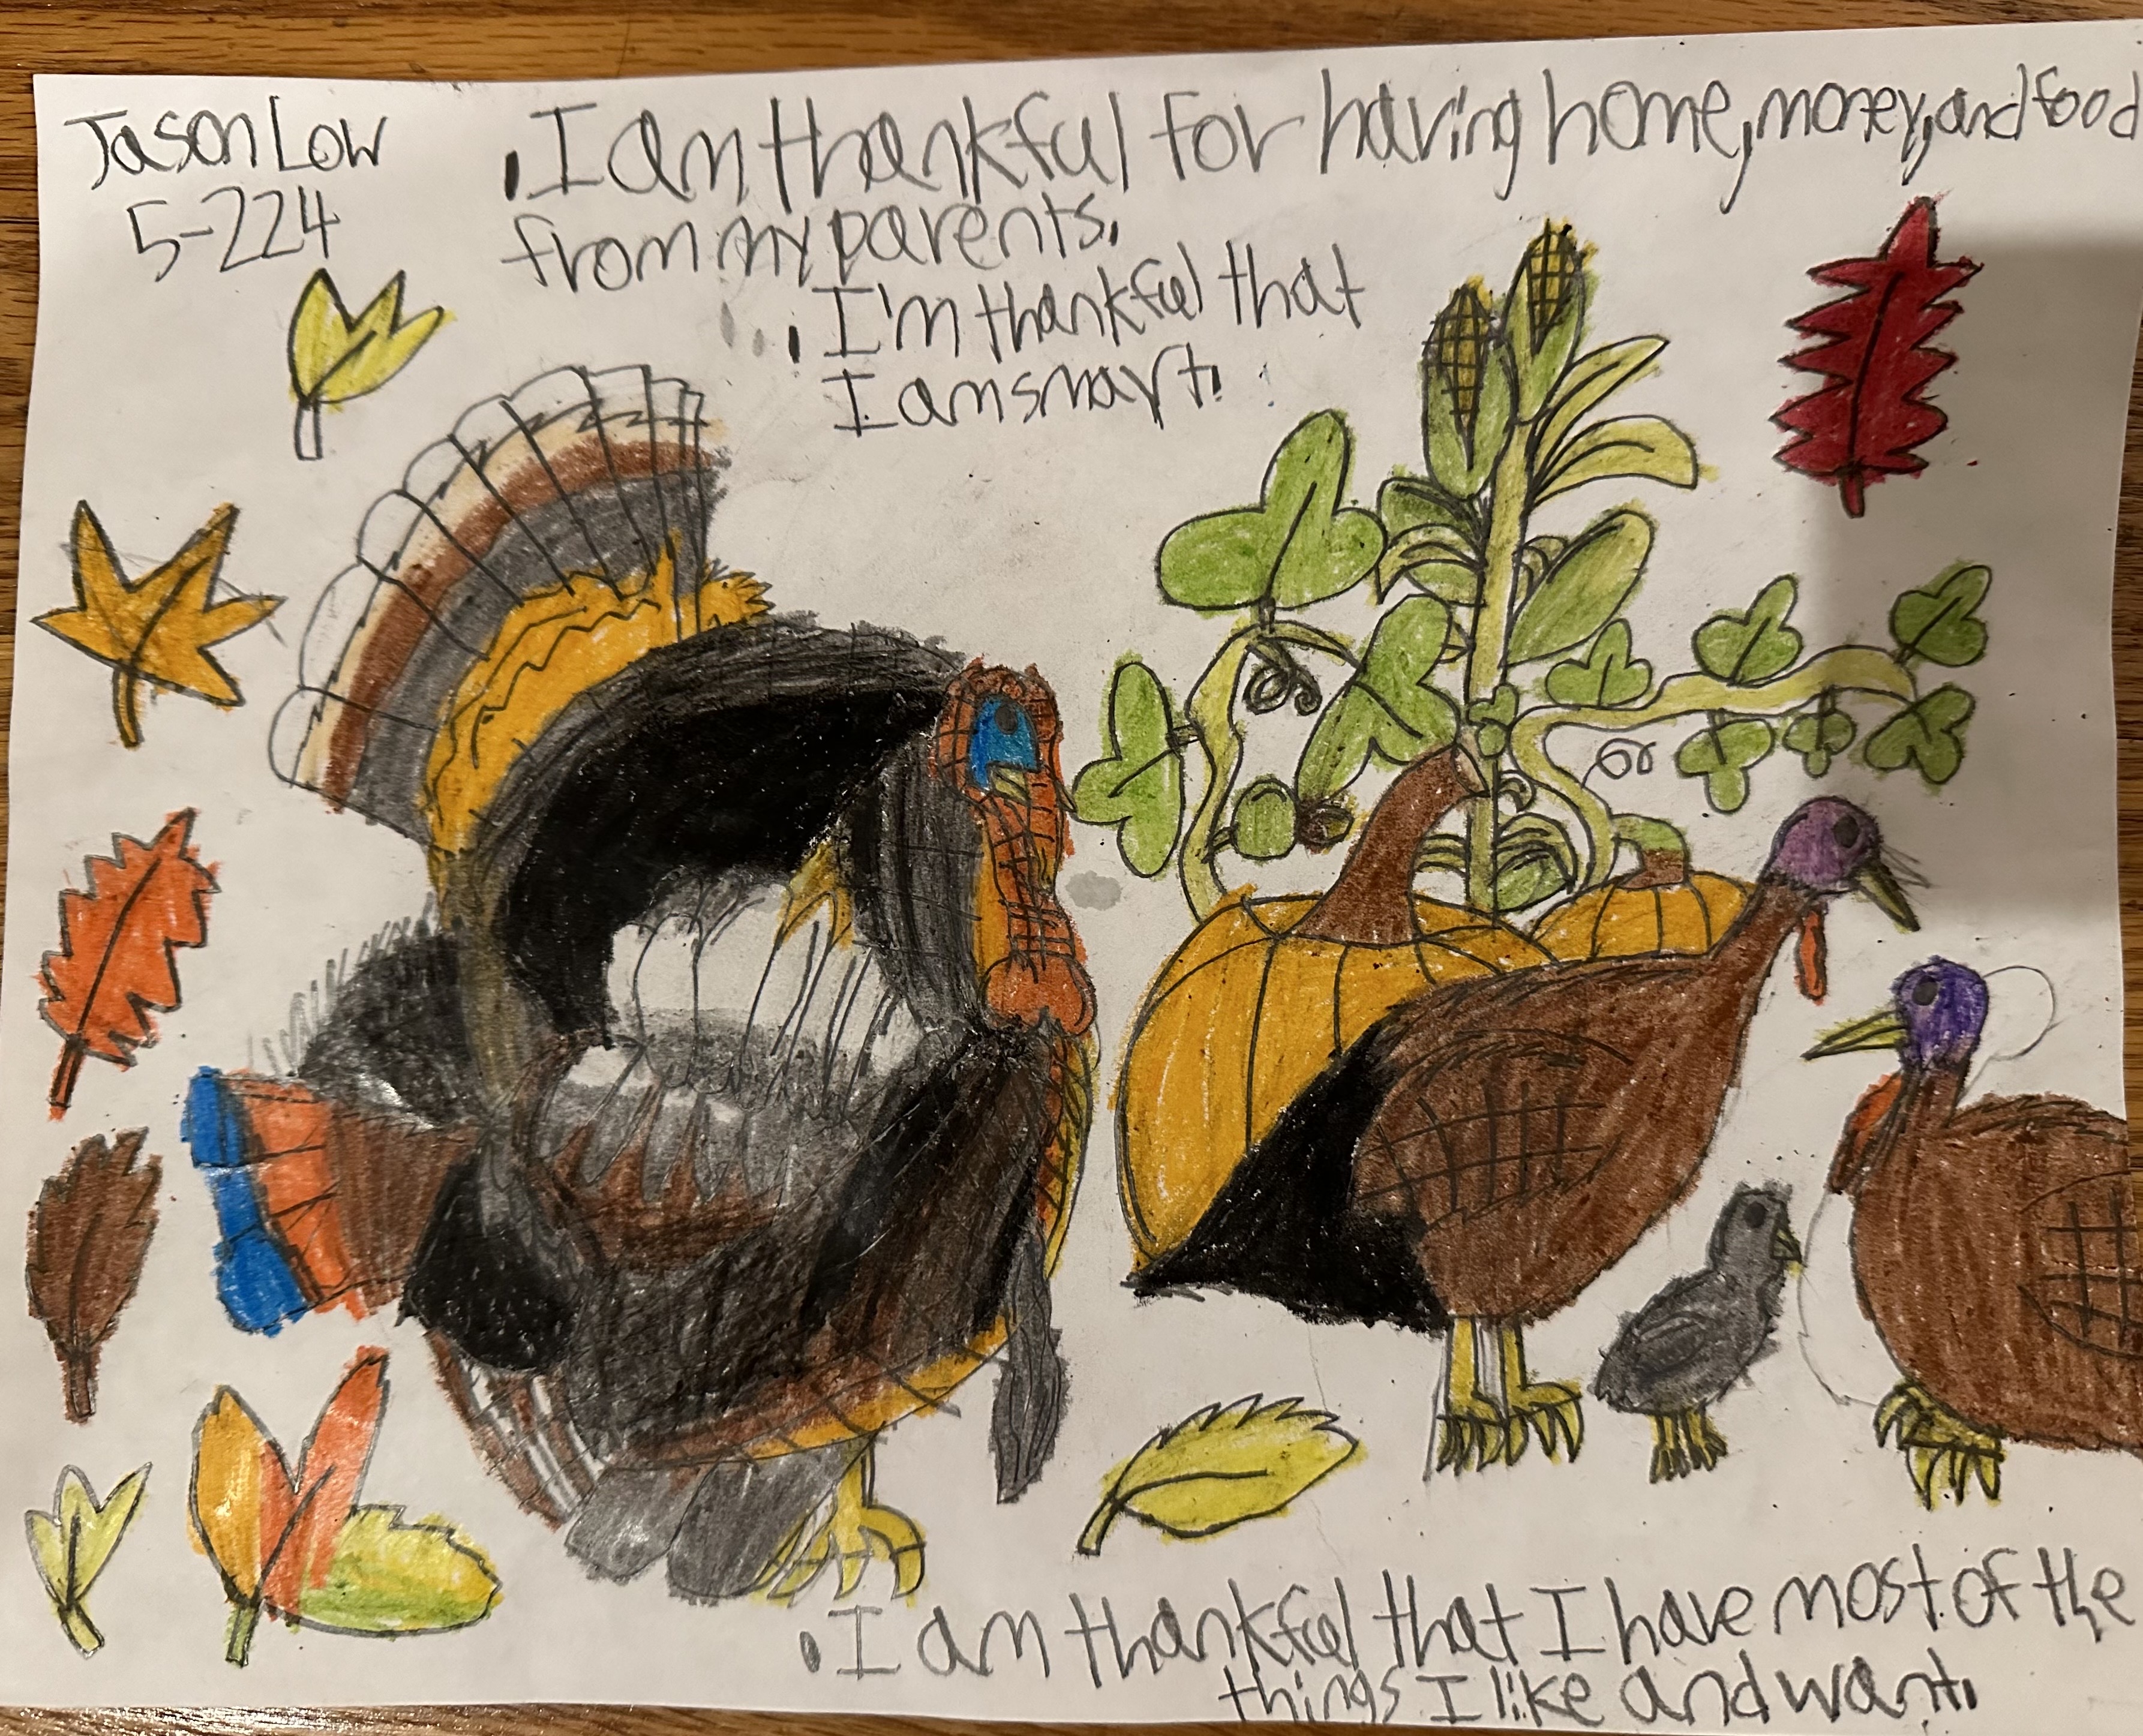 Jason Low
5-224
. I am thankful for having home, money, and food
from my parents.
. I'm thankful that
I am smart.
. I am thankful that I have most of the
things I like and want.